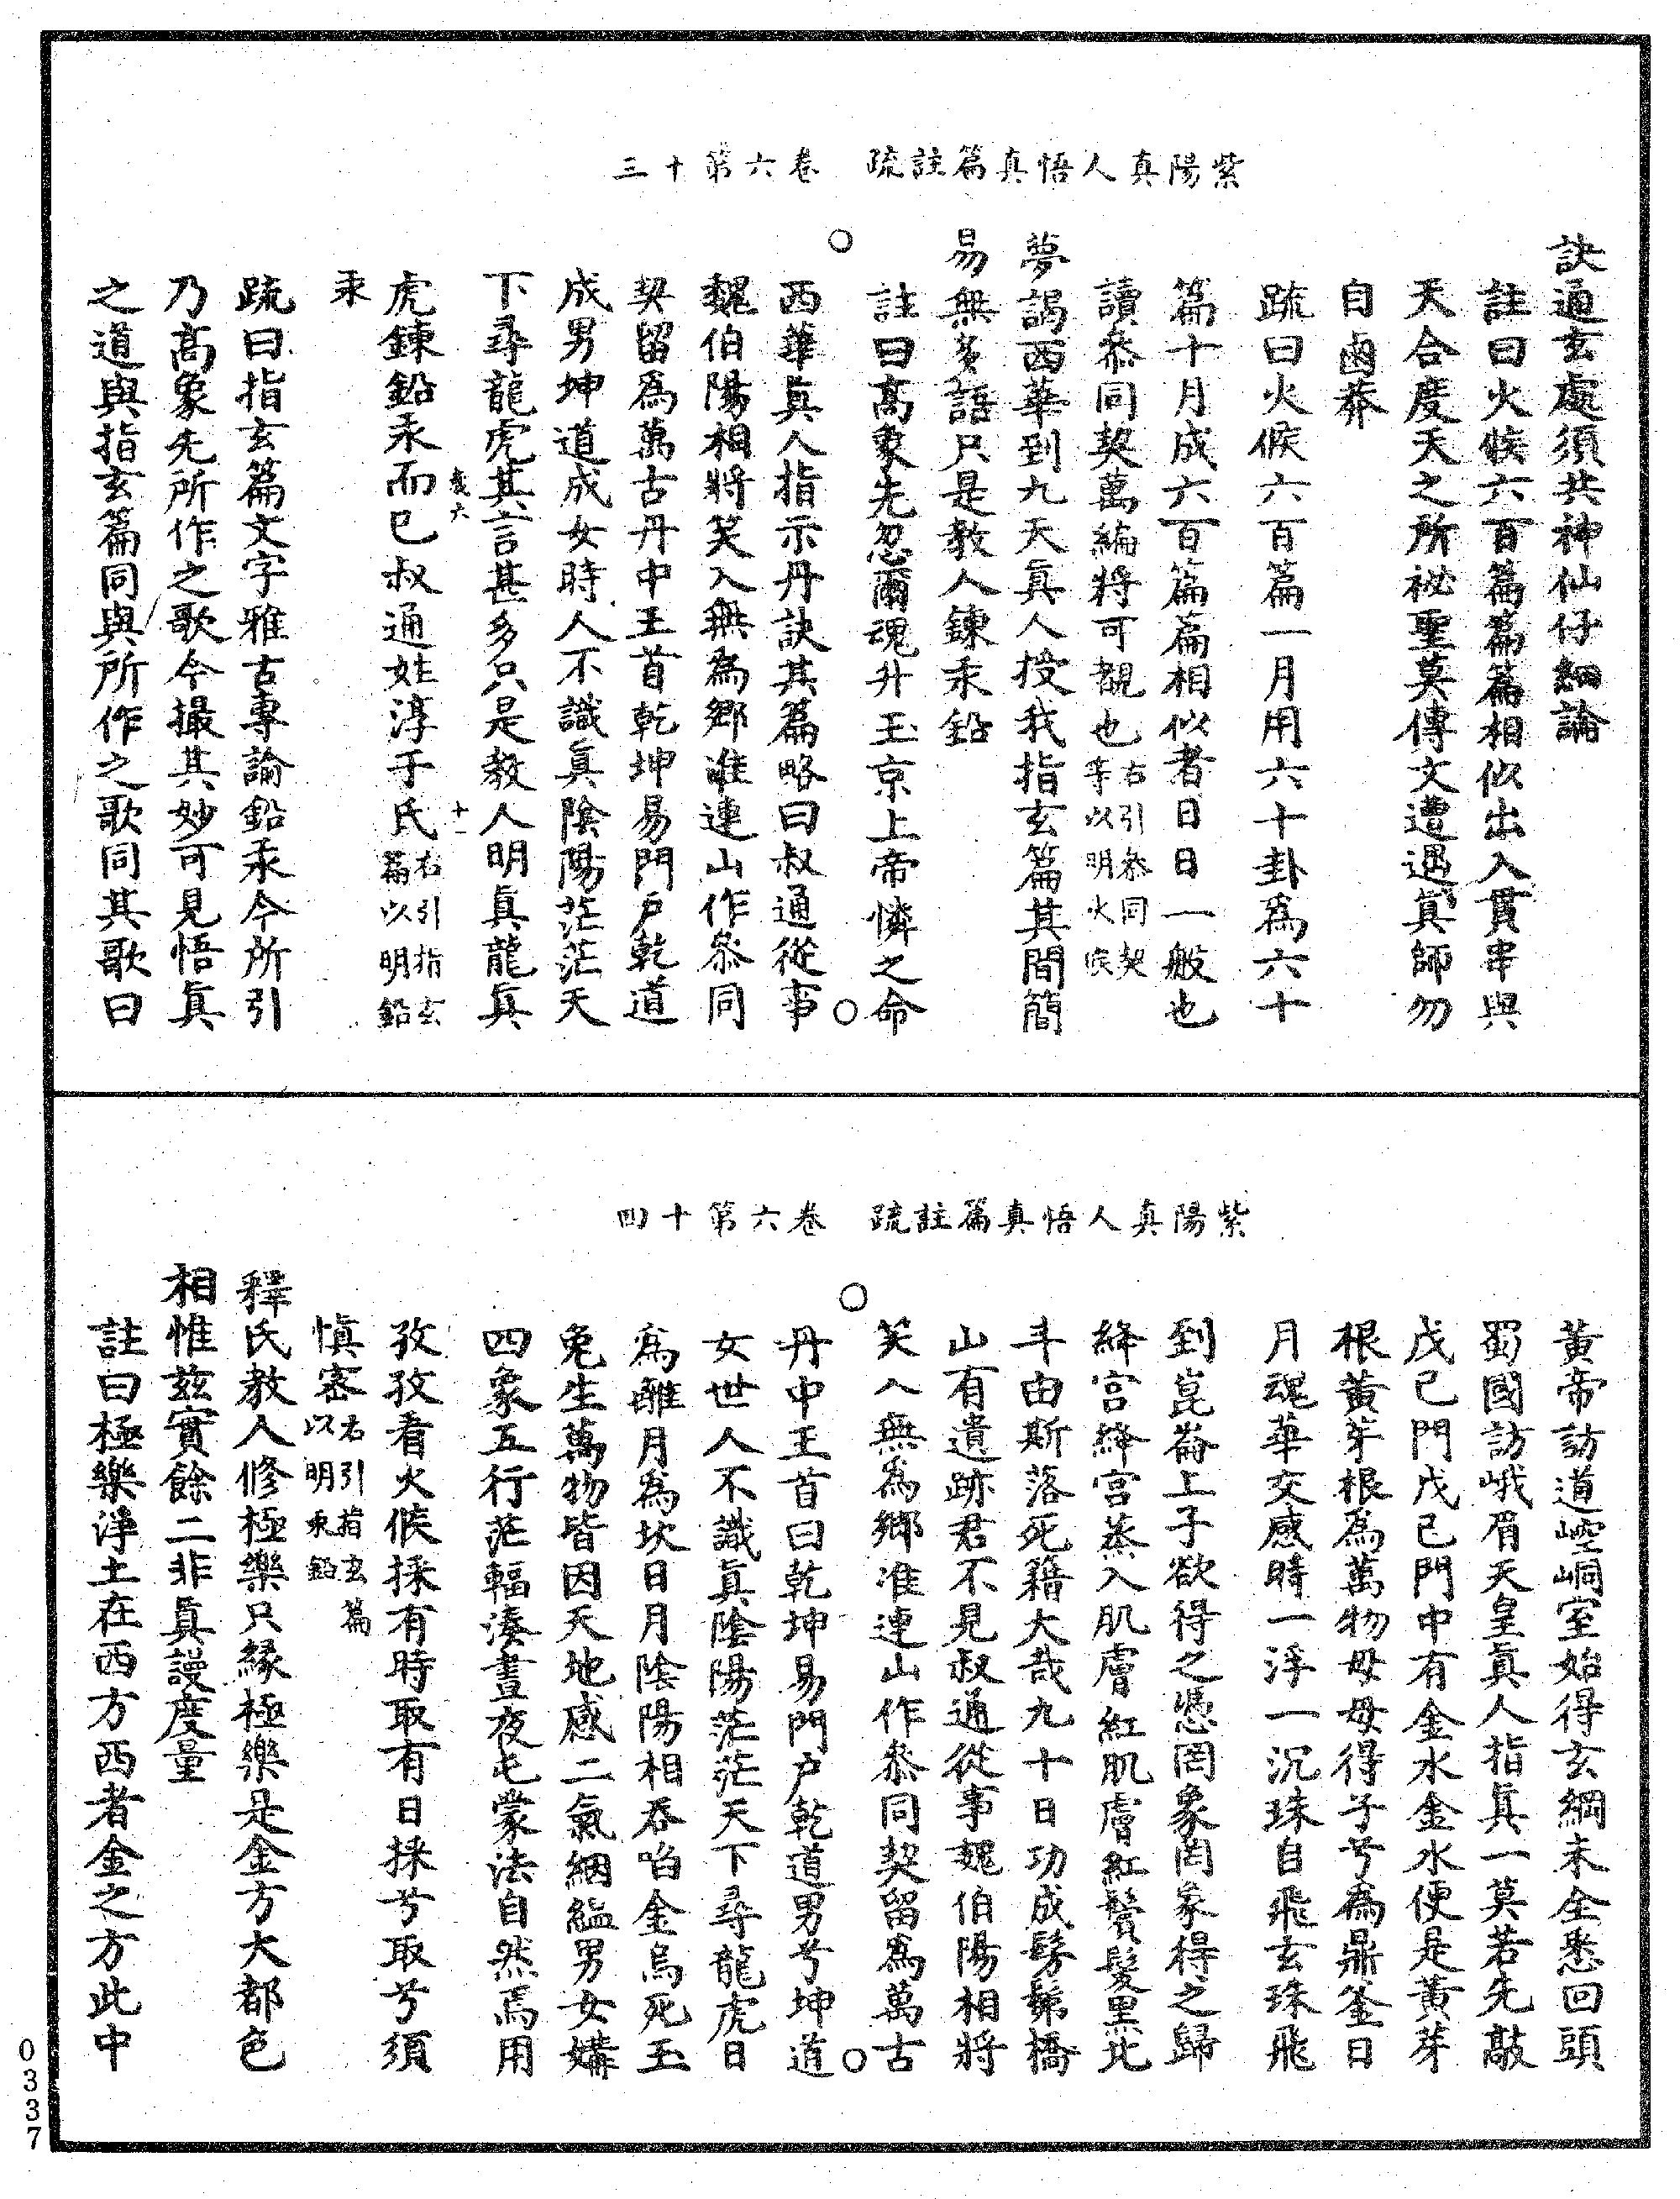 紫陽真人悟真篇註疏　卷六第十三
訣通玄處須共神仙仔細論
註曰火候六百篇篇篇相似出入貫串與
天合度天之所祕聖莫傳文遭遇真師勿
自鹵莽
疏曰火候六百篇一月用六十卦為六十
篇十月成六百篇篇相似者日日一般也
讀叅同契萬緶將可覩也右引叅同契等以明火候
夢謁西華到九天真人授我指玄篇其間簡
易無多語只是教人鍊汞鉛
註曰高象先忽爾魂升玉京上帝憐之命
西華真人指示丹訣其篇略曰叔通從事
魏伯陽相將笑入無為鄉准連山作叅同
契留為萬古丹中王首乾坤易門戶乾道
成男坤道成女時人不識真陰陽茫茫天
下尋龍虎其言甚多只是教人明真龍真
虎鍊鉛汞而已叔通姓淳于氏右引指玄篇以明鉛
汞
疏曰指玄篇文字雅古專論鉛汞今所引
乃高象先所作之歌今撮其妙可見悟真
之道與指玄篇同與所作之歌同其歌曰
紫陽真人悟真篇註疏　卷六第十四
黃帝訪道崆峒室始得玄綱未全悉回頭
蜀國訪峨眉天皇真人指真一莫若先敲
戊己門戊己門中有金水金水便是黃芽
根黃芽根為萬物母母得子兮為鼎釜日
月魂華交感時一浮一沉珠自飛玄珠飛
到崑崙上子欲得之憑罔象罔象得之歸
絳宮絳宮蒸入肌膚紅肌膚紅鬢髮黑北
斗由斯落死籍大哉九十日功成髣髴橋
山有遺跡君不見叔通從事魏伯陽相將
笑入無為鄉准連山作叅同契留為萬古
丹中王首曰乾坤易門戶乾道男兮坤道
女世人不識真陰陽茫茫天下尋龍虎日
為離月為坎日月陰陽相吞啗金烏死玉
兔生萬物皆因天地感二氣絪縕男女媾
四象五行茫輻湊晝夜屯蒙法自然焉用
孜孜看火候採有時取有日採兮取兮須
慎密右引指玄篇以明汞鉛
釋氏教人修極樂只緣極樂是金方大都色
相惟茲實餘二非真謾度量
註曰極樂淨土在西方西者金之方此中
0337